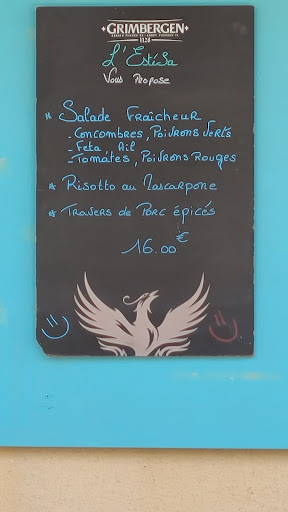 GRIMBERGEN
1128
L'EstéSa
Vous Propose
* Salade Fraîcheur
- Concombres, Poivrons Verts
- Feta, Ail
- Tomates, Poivrons Rouges
* Risotto au Mascarpone
* Travers de Porc épicés
16.00 €